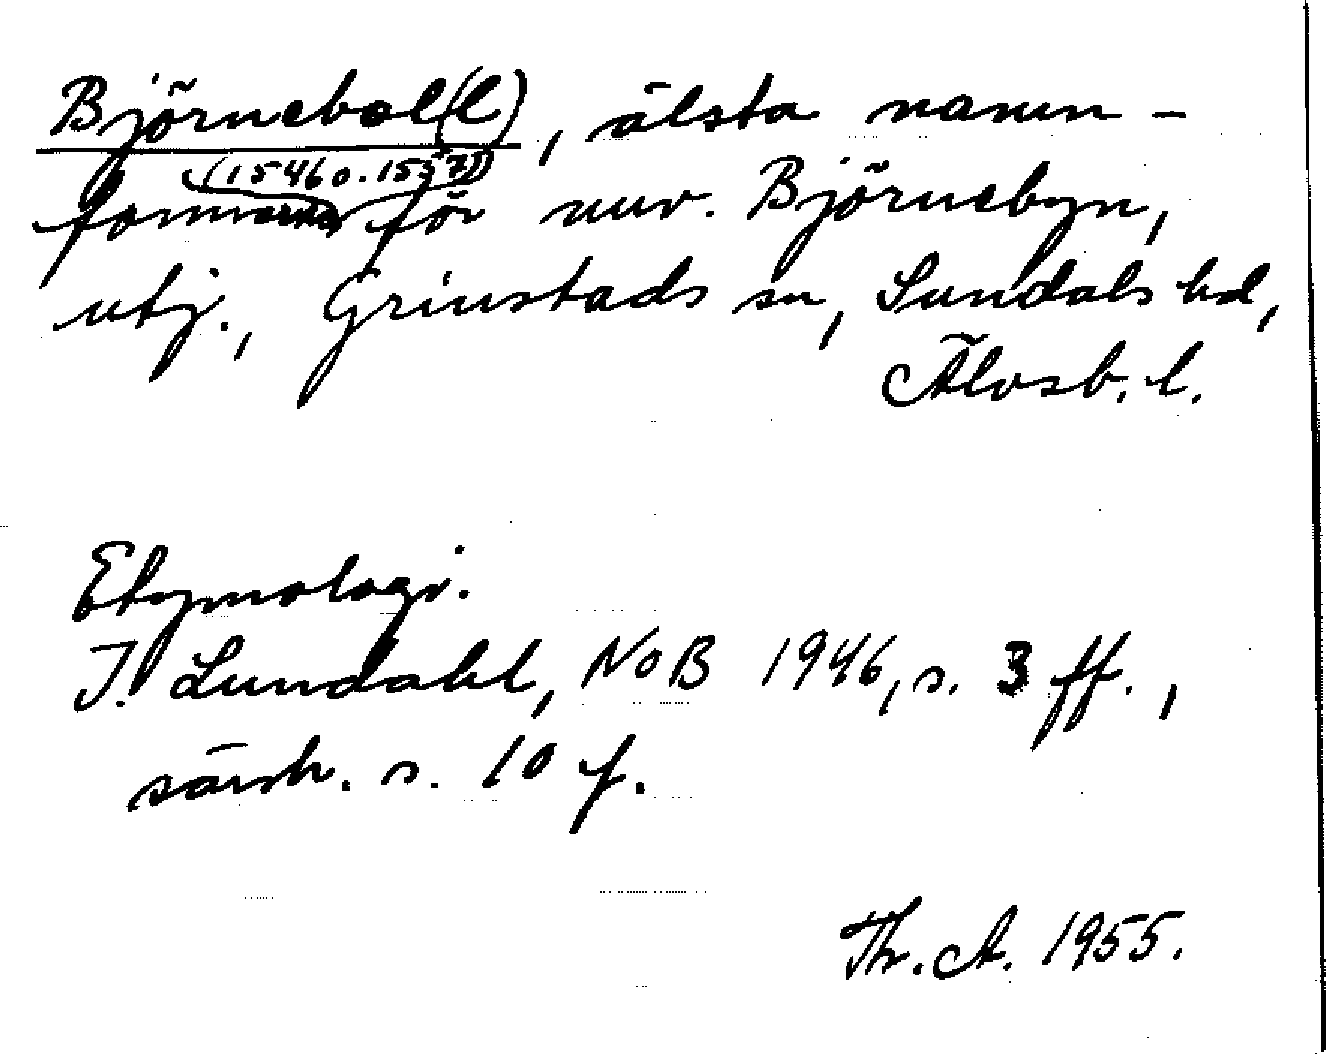 Björnebol(l), älsta namn-
(1546 o. 1557)
formerna för nuv. Björnebyn,
utj., Grinstads sn, Sundals hd,
Älvsb. l.
Etymologi.
I. Lundahl, NoB 1946, s. 3 ff.,
särsk. s. 10 f.
Th. A. 1955.